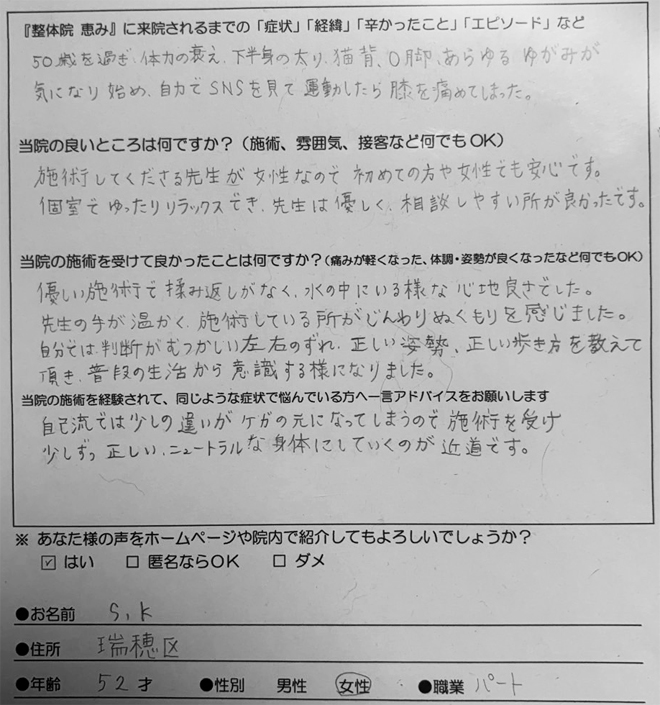 『整体院 恵み』に来院されるまでの「症状」「経緯」「辛かったこと」「エピソード」など
50歳を過ぎ、体力の衰え、下半身の太り、猫背、O脚、あらゆるゆがみが
気になり始め、自力でSNSを見て運動したら膝を痛めてしまった。
当院の良いところは何ですか？（施術、雰囲気、接客など何でもOK）
施術してくださる先生が女性なので初めての方や女性でも安心です。
個室でゆったりリラックスでき、先生は優しく、相談しやすい所が良かったです。
当院の施術を受けて良かったことは何ですか？（痛みが軽くなった、体調・姿勢が良くなったなど何でもOK）
優しい施術で揉み返しがなく、水の中にいる様な心地良さでした。
先生の手が温かく、施術している所がじんわりぬくもりを感じました。
自分では判断がむつかしい左右のずれ、正しい姿勢、正しい歩き方を教えて
頂き、普段の生活から意識する様になりました。
当院の施術を経験されて、同じような症状で悩んでいる方へ一言アドバイスをお願いします
自己流では少しの違いがケガの元になってしまうので施術を受け
少しずつ正しい、ニュートラルな身体にしていくのが近道です。
※ あなた様の声をホームページや院内で紹介してもよろしいでしょうか？
☑ はい □ 匿名ならOK □ ダメ
●お名前 S.K
●住所 瑞穂区
●年齢 52才 ●性別 男性 女性 ●職業 パート